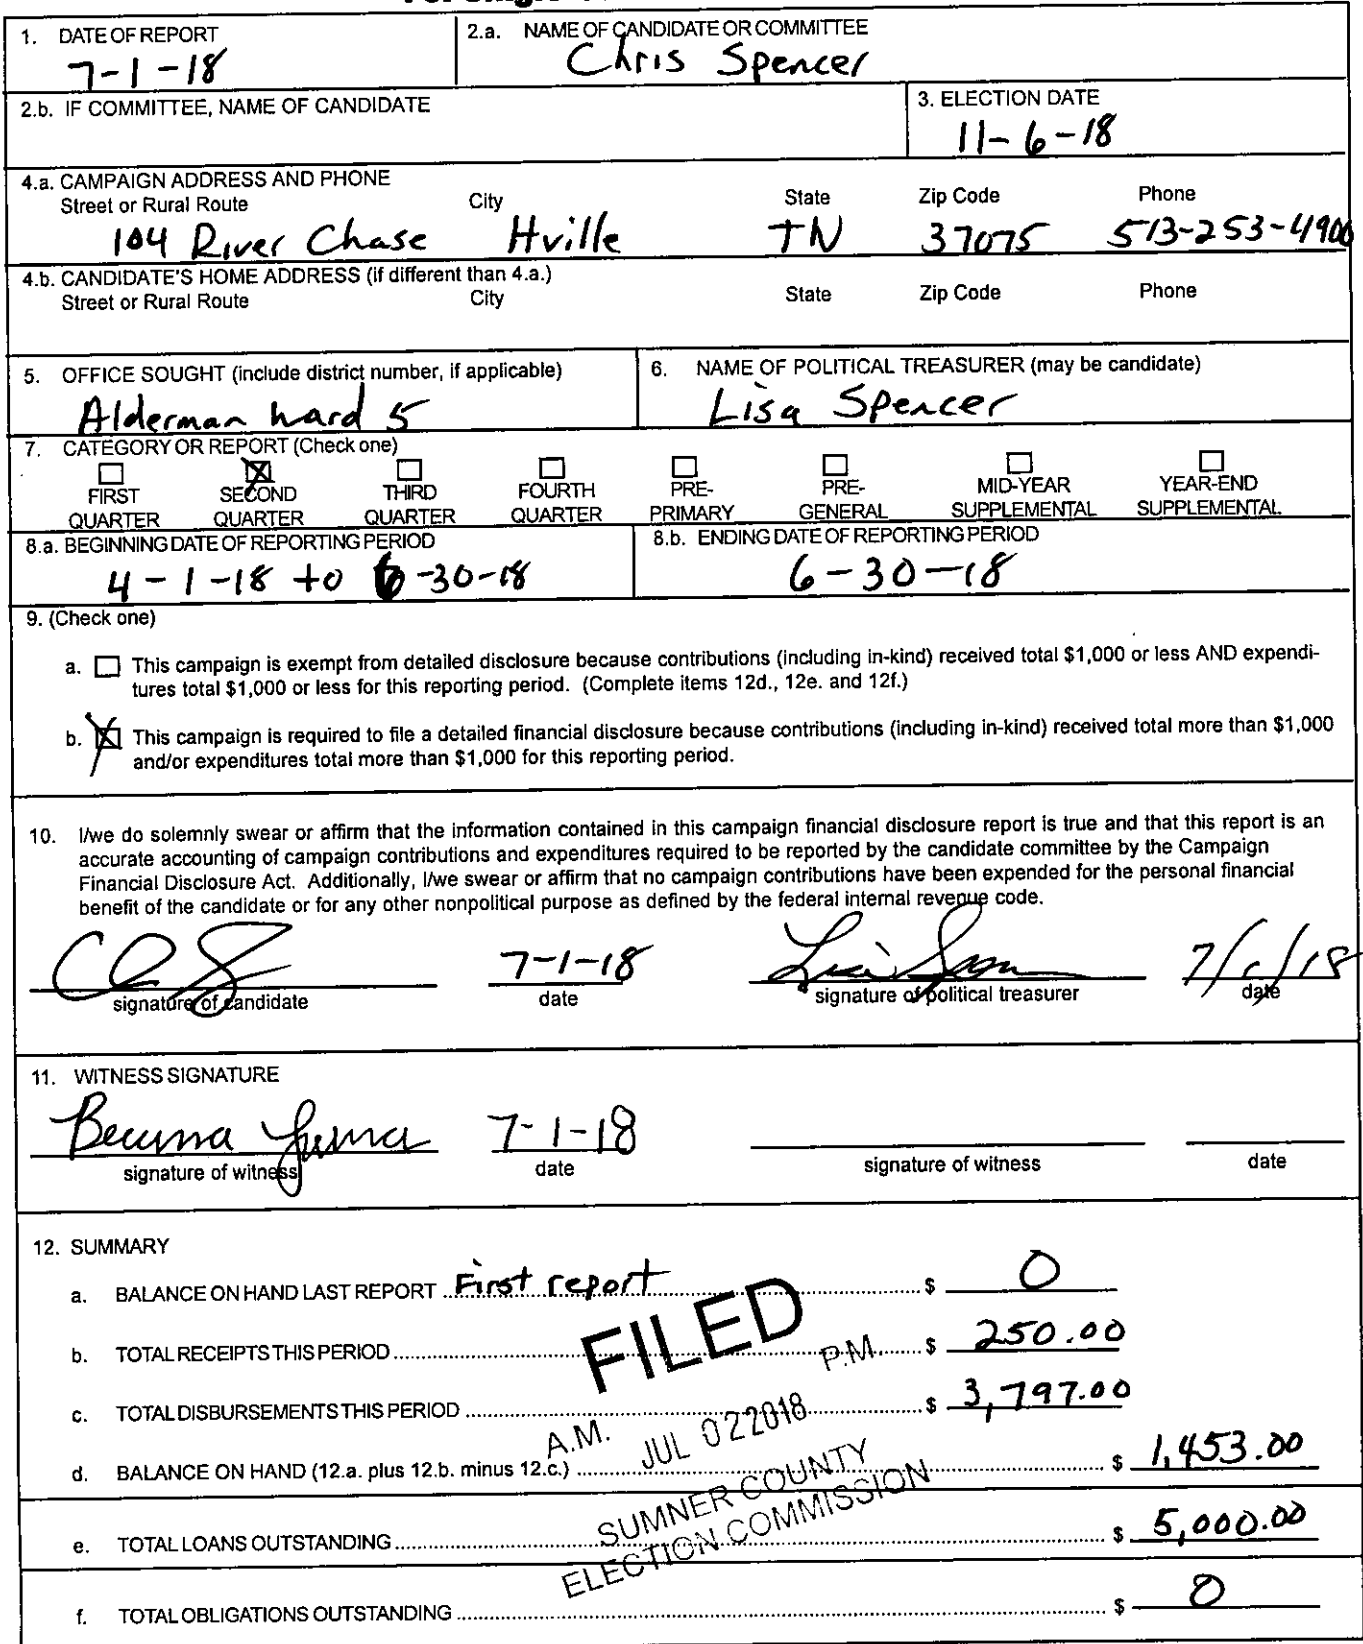 1. DATE OF REPORT
7-1-18
2.a. NAME OF CANDIDATE OR COMMITTEE
Chris Spencer
2.b. IF COMMITTEE, NAME OF CANDIDATE
3. ELECTION DATE
11-6-18
4.a. CAMPAIGN ADDRESS AND PHONE
Street or Rural Route City State Zip Code Phone
104 River Chase Hville TN 37075 513-253-4900
4.b. CANDIDATE'S HOME ADDRESS (if different than 4.a.)
Street or Rural Route City State Zip Code Phone
5. OFFICE SOUGHT (include district number, if applicable)
Alderman ward 5
6. NAME OF POLITICAL TREASURER (may be candidate)
Lisa Spencer
7. CATEGORY OR REPORT (Check one)
FIRST QUARTER
SECOND QUARTER
THIRD QUARTER
FOURTH QUARTER
PRE-PRIMARY
PRE-GENERAL
MID-YEAR SUPPLEMENTAL
YEAR-END SUPPLEMENTAL
8.a. BEGINNING DATE OF REPORTING PERIOD
4-1-18 to 6-30-18
8.b. ENDING DATE OF REPORTING PERIOD
6-30-18
9. (Check one)
a. This campaign is exempt from detailed disclosure because contributions (including in-kind) received total $1,000 or less AND expendi-
tures total $1,000 or less for this reporting period. (Complete items 12d., 12e. and 12f.)
b. This campaign is required to file a detailed financial disclosure because contributions (including in-kind) received total more than $1,000
and/or expenditures total more than $1,000 for this reporting period.
10. I/we do solemnly swear or affirm that the information contained in this campaign financial disclosure report is true and that this report is an
accurate accounting of campaign contributions and expenditures required to be reported by the candidate committee by the Campaign
Financial Disclosure Act. Additionally, I/we swear or affirm that no campaign contributions have been expended for the personal financial
benefit of the candidate or for any other nonpolitical purpose as defined by the federal internal revenue code.
7-1-18 7/1/18
signature of candidate date signature of political treasurer date
11. WITNESS SIGNATURE
7-1-18
signature of witness date signature of witness date
12. SUMMARY
a. BALANCE ON HAND LAST REPORT First report $ 0
b. TOTAL RECEIPTS THIS PERIOD $ 250.00
c. TOTAL DISBURSEMENTS THIS PERIOD $ 3,797.00
d. BALANCE ON HAND (12.a. plus 12.b. minus 12.c.) $ 1,453.00
e. TOTAL LOANS OUTSTANDING $ 5,000.00
f. TOTAL OBLIGATIONS OUTSTANDING $ 0
FILED
A.M. JUL 02 2018 P.M.
SUMNER COUNTY
ELECTION COMMISSION